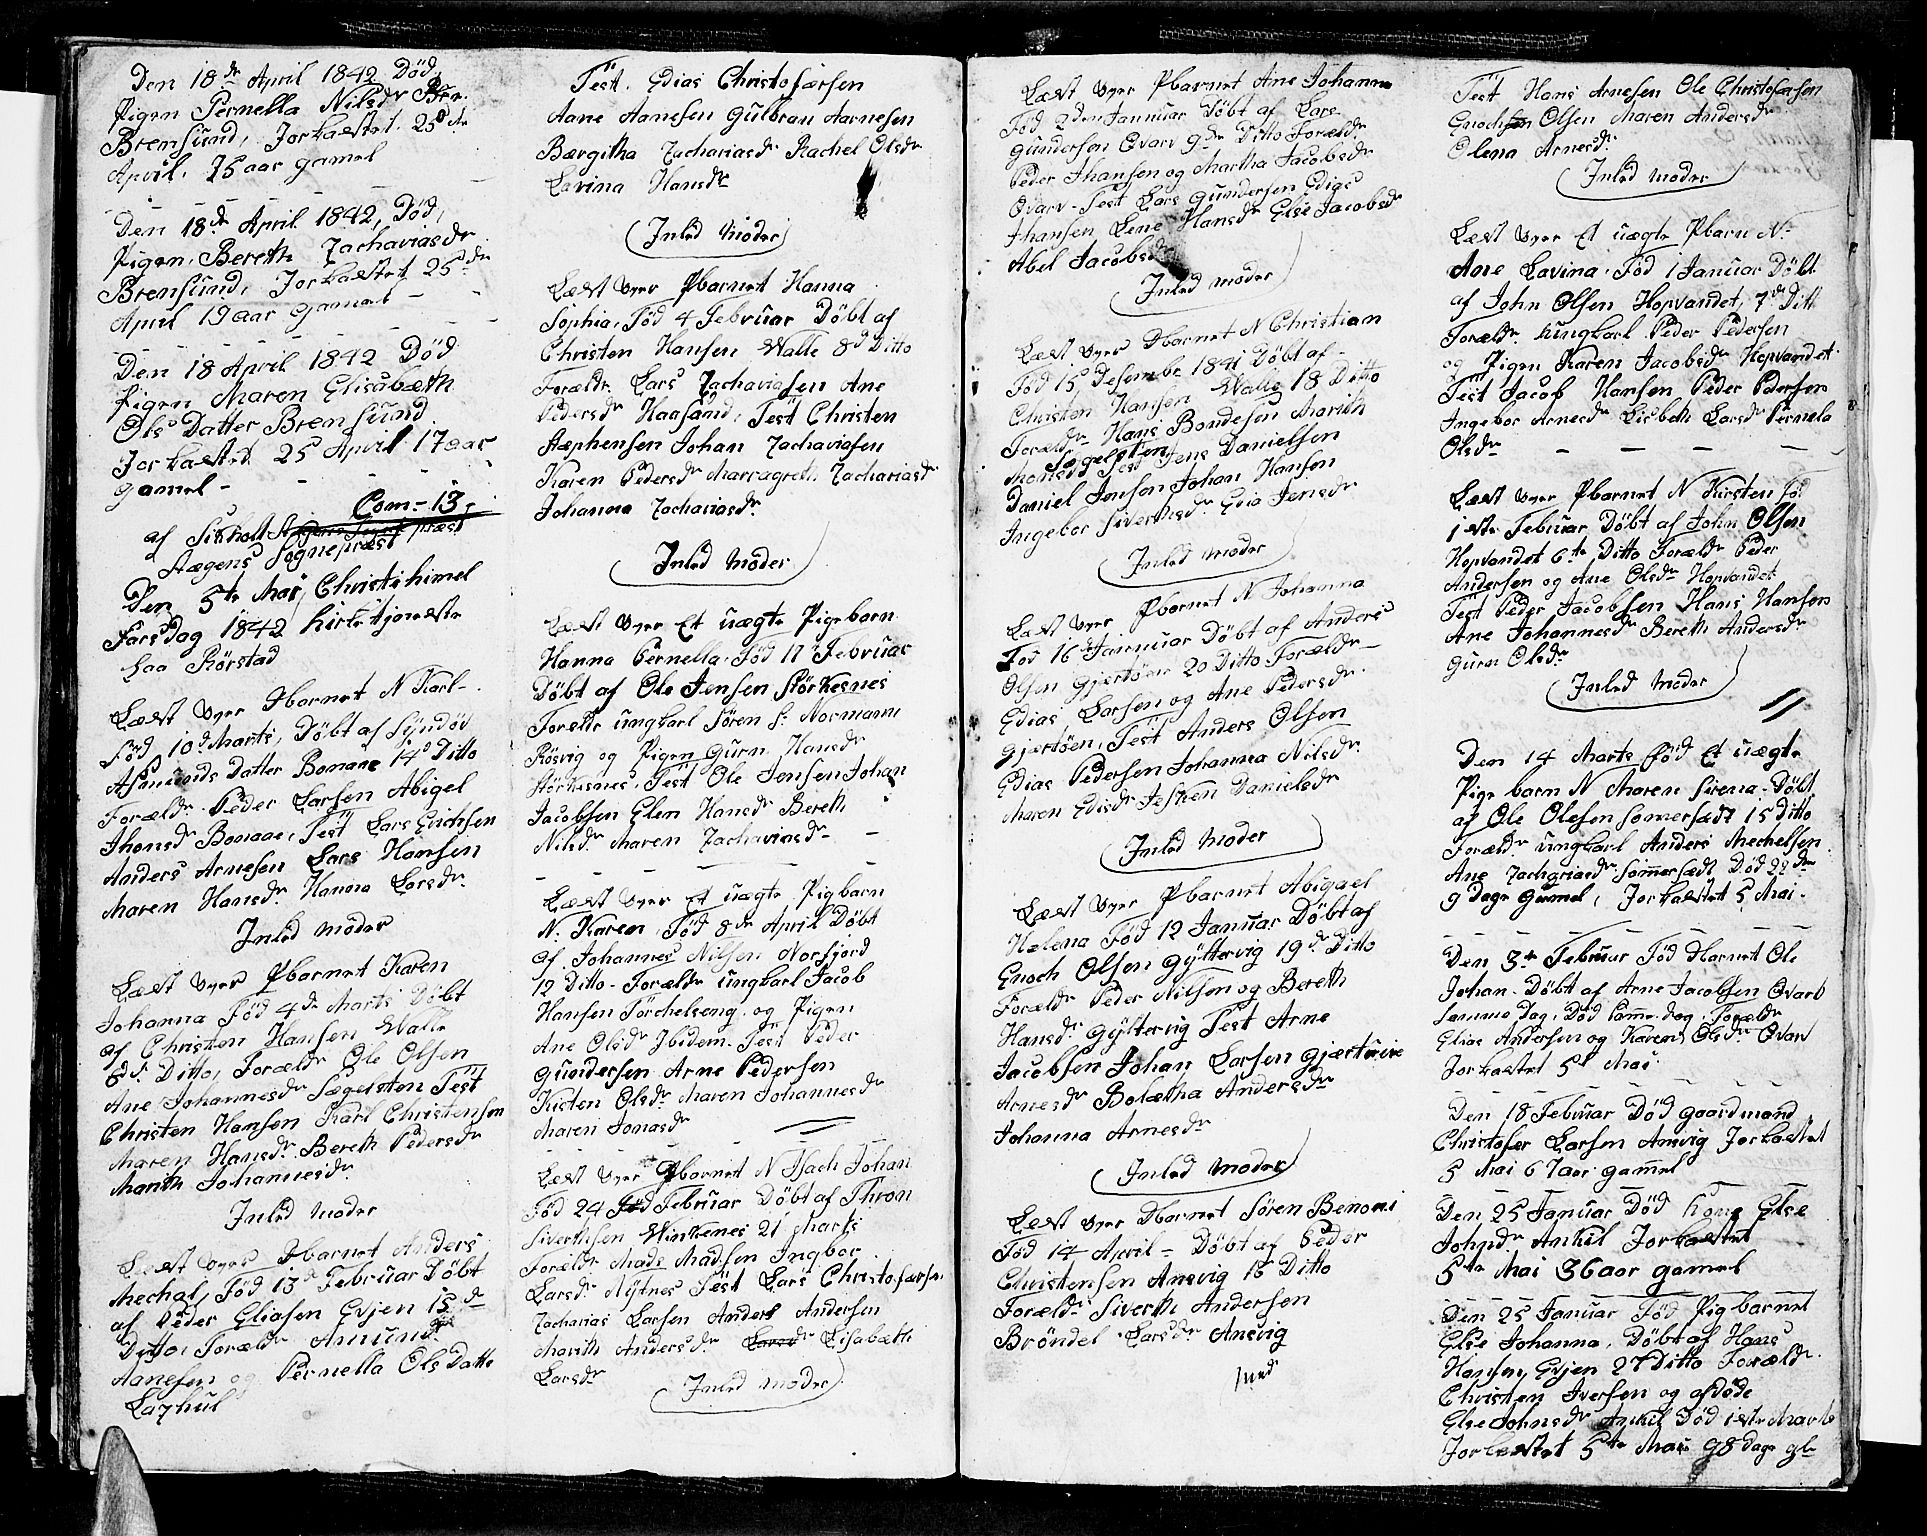 Den 18de April 1842 Død,
Pigen Pernella Nilsdr Bre-
Brensund, Jorkastet. 25de
April. 25 aar gamel
Den 18de April 1842, Død,
Pigen, Bereth Zachariasdr
Brensund, Jorkastet 25de
April 19 aar gamel -
Den 18 April 1842 Død
Pigen Maren Elisabeth
Ols Datter Brensund
Jorkastet 25 April 17 aar
gamel -
Com - 13
af Sitkholt
Aagens Sognepræst
Den 5te Mai, Christi himel
Fars Dag 1842 kirketjeneste
paa Rörstad
Læst over Dbarnet N Karl -
Fød 10d Marts, Döbt af Syndöv
Asmunds Datter Bonaae 14d Ditto
Forældr. Peder Larsen Abigel
Jhonsdr Bonaae, Test Lars Erichsen
Anders Arnesen Lars Hansen
Maren Hansdr Hanna Larsdr
Inled moder
Læst over Pbarnet Karen
Johanna Fød 4de Marts Döbt
af Christen Hansen Walle
6d. Ditto, Forældr Ole Olsen
Ane Johannesdr Sægelsten Test
Christen Hansen Karl Christensen
Maren Hansdr Bereth Pedersdr
Marith Johannesdr
Inled moder
Læst over Dbarnet Anders
Mechal, Fød 13d Februar Döbt
af Peder Eliasen Evjen 15de
Ditto, Forældr Amund
Aanesen og Pernella Ols Datte
Layhul
Test. Edias Christofersen
Aane Aanesen Gulbran Aarnesen
Bærgitha Zachariasdr Rachel Olsdr
Lavina Hansdr
Inled moder
Læst over Pbarnet Hanna
Sophia, Fød 4 Februar Döbt af
Christen Hansen Walle 8d Ditto
Forældr Lars Zachariasen Ane
Pedersdr Haasand, Test Christen
Stephensen Johan Zachariasen
Karen Pedersdr Marragreth Zachariasdr
Johanna Zachariasdr
Inled moder
Læst over Et uægte Pigebarn
Hanna Pernella. Fød 17 Februar
Döbt af Ole Jensen Störkesnes
Forældr ungkarl Sören S: Normann
Rösvig og Pigen Gurn Hansdr
Störkesnes. Test Ole Jensen Johan
Jacobsen Elen Hansdr Bereth
Nilsdr Maren Zachariasdr -
Læst over Et uægte Pigbarn
N. Karen, Fød 8de April Döbt
af Johannes Nilsen Norfjord
12 Ditto - Forældr ungkarl Jacob
Hansen Törchelseng. og Pigen
Ane Olsdr Ibidem. Test Peder
Gundersen Arne Pedersen
Kisten Olsdr Maren Johannesdr
Maren Jonasdr
Læst over Dbarnet N Isach Johan
Fød 24 Februar Döbt af Thron
Siverthsen Winkenes 21 Marts
Forældr Mads Madsen Ingbor
Larsdr Nystnes Test Lars Christofersen
Zacharias Larsen Anders Andersen
Marith Andersdr Larsdr Elisabeth
Larsdr
Inled moder
Læst over Pbarnet Ane Johanna
Fød 2den Januar Döbt af Lars
Gundersen Qvarv 9de Ditto Forældr
Peder Jhansen og Martha Jacobsdr
Qvarv - Test Lars Gundersen Edias
Jhansen Lene Hansdr Else Jacobsdr
Abel Jacobsdr
Inled moder
Læst over Dbarnet N Christian
Fød 15 Desembr 1841 Döbt af -
Christen Hansen Walle 18 Ditto
Forældr Hans Bondesen Marith
Monsdr Sægelsten Test Jens Danielsen
Daniel Jensen Johan Hansen
Ingebor Siverthsdr Edia Jensdr
Inled moder
Læst over Pbarnet N Johanna
Fød 16d Januuar Döbt af Anders
Olsen Gjertöen 20 Ditto Forældr -
Edias Larsen og Ane Pedersdr.
Gjertöen, Test Anders Olsen
Edias Pedersen Johanna Nilsdr.
Maren Edisdr Jesken Danielsdr
Inled moder
Læst over Pbarnet Abigael
Helena Fød 12 Januar Döbt af
Enoch Olsen Gyltervig 19de Ditto
Forældr Peder Nilsen og Bereth
Hansdr Gyltervig Test Arne
Jacobsen Johan Larsen Gjærtrui
Arnesdr Bolætha Andersdr
Johanna Arnesdr
Inled moder
Læst over Dbarnet Sören Benoni
Fød 14 April - Döbt af Peder
Christensen Anevig 15 Ditto
Forældr Siverth Andersen
Bröndel Larsdr Anevig
Ined
Test Hans Arnesen Ole Christofersen
Enochsen Olsen Maren Andersdr
Olena Arnesdr
Inled moder
Læst over Et uægte Pbarn N.
Ane Lavina. Fød 1 Januar Döbt
af John Olsen Hopvandet, 7de Ditt
Forældr ungkarl Peder Pedersen
og Pigen Karen Jacobsdr Hopvandet.
Test Jacob Hansen Peder Pedersen
Ingebor Arnesdr Lisbeth Larsdr Pernela
Olsdr
Læst over Pbarnet N Kirsten Fød
1ste Februar Döbt af John Olsen
Hopvandet 6te Ditto Forældr Peder
Andersen og Ane Olsdr Hopvandet
Test Peder Jacobsen Hans Hansen
Ane Johannesdr Bereth Andersdr
Gurn Olsdr
Inled moder
Den 14 Marts Fød Et uægte
Pige barn N Maren Sirena. Döbt
af Ole Olesen Somersædt 15 Ditto
Forældr ungkarl Anders Mechelsen
Ane Zachariasdr Sommersædt Död 22de
9 Dage gammel, Jorkastet 5 Mai.
Den 3de Februar Fød Dbarnet Ole
Johan. Döbt af Arne Jacobsen Qvarv
Samme Dag, Död samme dag. Forældr
Elias Andersen og Karen Olsdr Qvarv
Jorkastet 5t Mai.
Den 18 Februar Död gaardmand
Christofer Larsen Anevig Jorkastet
5 Mai 67 aar gammel
Den 25 Januar Död kone Else
Johndr Ankil Jorkastet
5te Mai 36 aar gamel
Den 25 Januar Fød Pigbarnet
Else Johanna, Döbt af Hans
Hansen Evjen 27 Ditto Forældr
Christen Iversen og afdöde
Else Johnsdr Ankil Död 1ste Marts
Jorkastet 5te Mai 98 Dage gl-